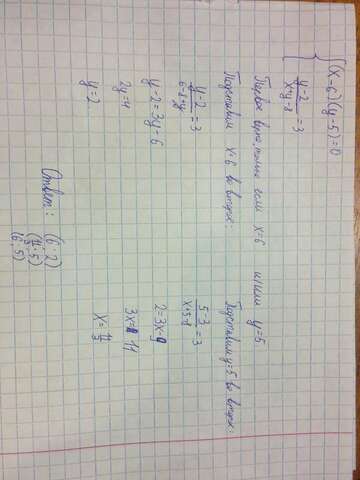 (x-6)(y-5)=0
y-2/x+y-8 =3
Первое верно, только если x=6 и/или y=5
Подставим x=6 во второе: Подставим y=5 во второе:
y-2/6-8+y =3 5-3/x+5-8 =3
y-2=3y-6 2=3x-9
2y=4 3x=11
y=2 x=11/3
Ответ: (6; 2)
; 5)
(6; 5)